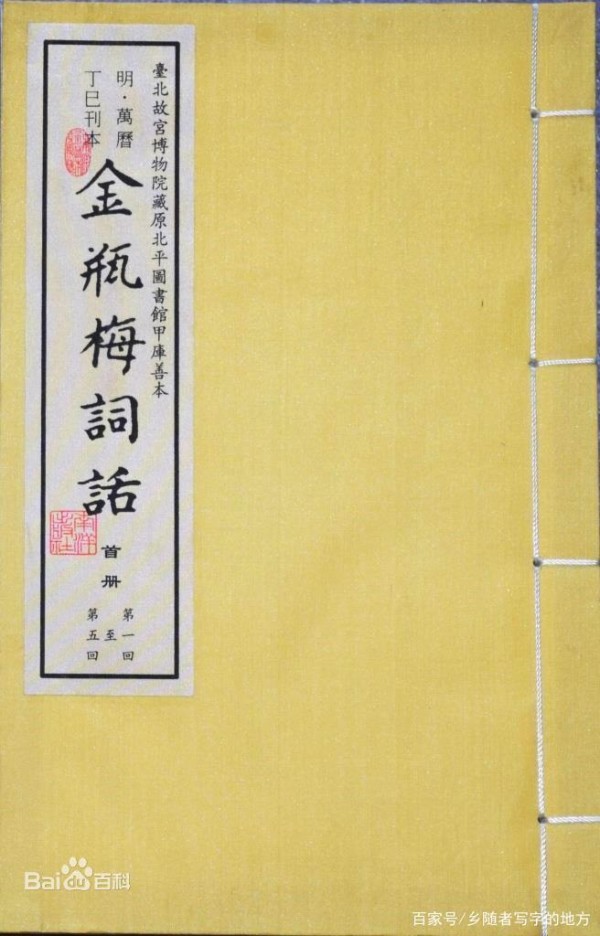 臺北故宮博物院藏原北平圖書館甲庫善本
明·萬曆
丁巳刊本
金瓶梅詞話
南洋
出版社
首册
第一回
至
第五回
Bai百科
百家号/乡随者写字的地方